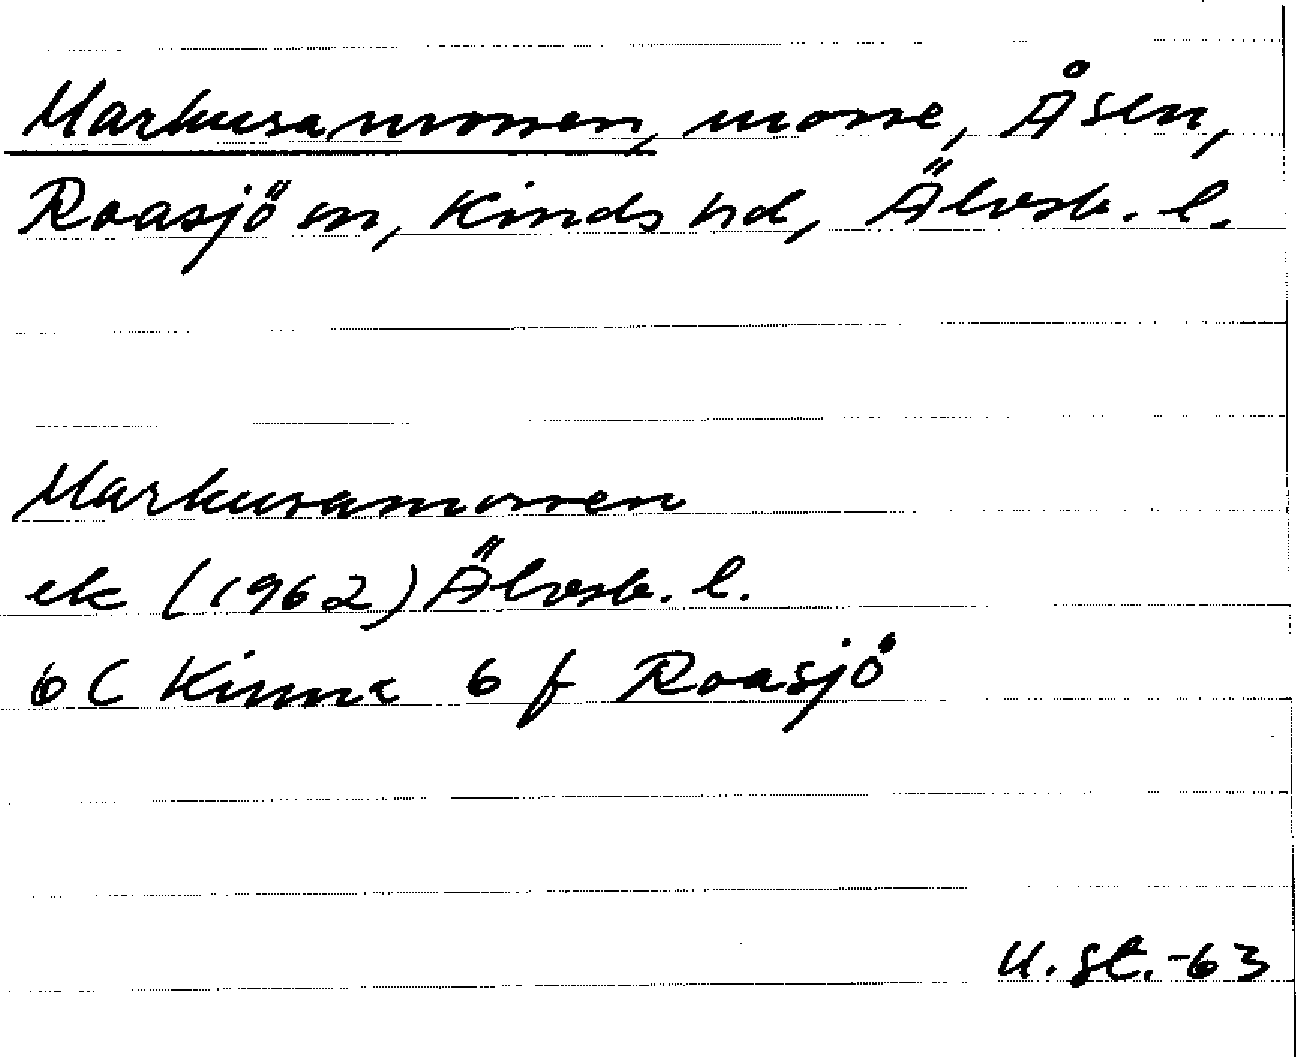 Markusamossen, mosse, Åsen,
Roasjö sn, Kinds hd, Älvsb. l.
Markusamossen
ek (1962) Älvsb. l.
6 C Kinna 6 f Roasjö
U. St. -63